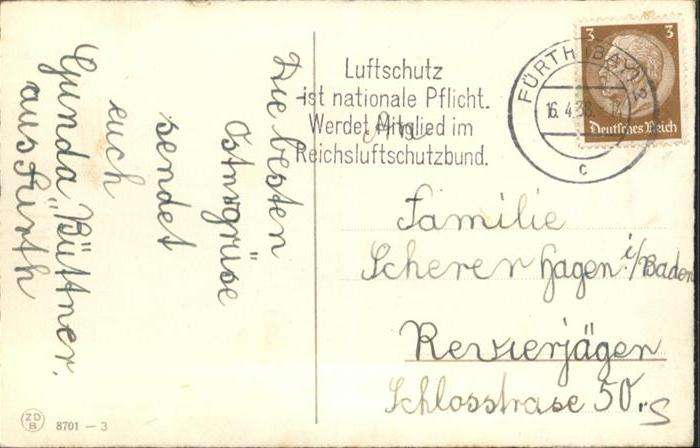 Die besten
Ostergrüse
sendet
euch
Gunda Büttner.
aus Fürth
Luftschutz
ist nationale Pflicht.
Werdet Mitglied im
Reichsluftschutzbund.
FÜRTH (BAY) 2
16.4.38
c
3 3
Deutsches Reich
An
Familie
Scherer Hagen i/Baden
Revierjäger
Schlosstrase 50
ZD
B
8701 – 3